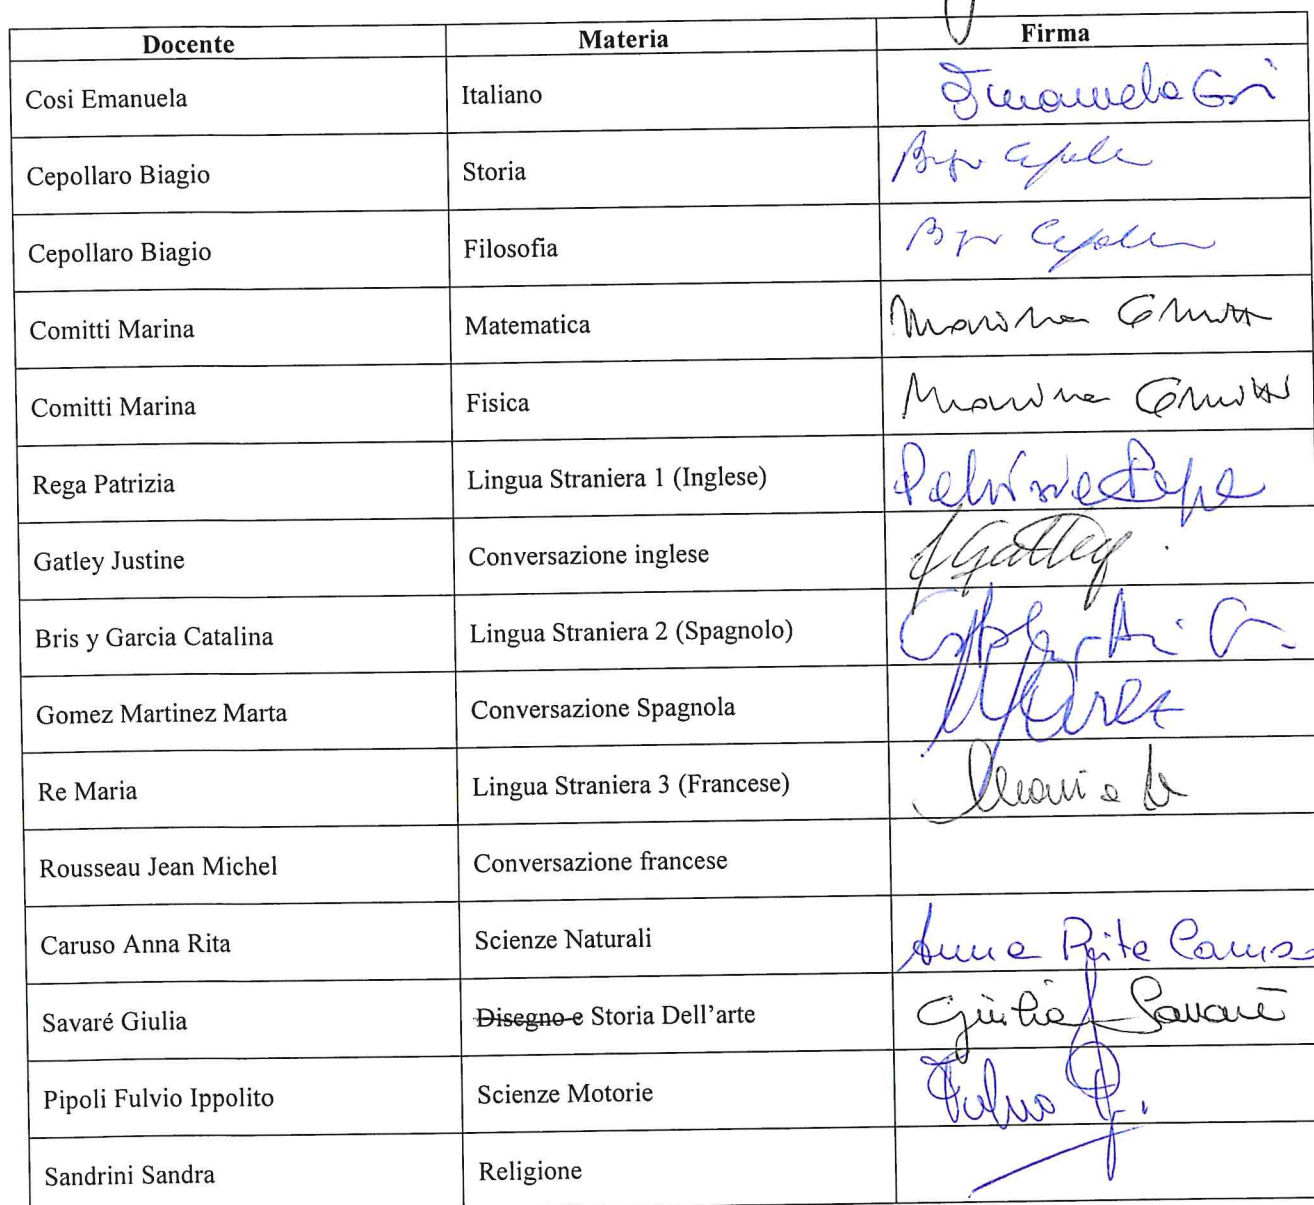 Docente Materia Firma
Cosi Emanuela Italiano Emanuela Cosi
Cepollaro Biagio Storia
Cepollaro Biagio Filosofia
Comitti Marina Matematica Marina Comitti
Comitti Marina Fisica Marina Comitti
Rega Patrizia Lingua Straniera 1 (Inglese)
Gatley Justine Conversazione inglese J Gatley
Bris y Garcia Catalina Lingua Straniera 2 (Spagnolo)
Gomez Martinez Marta Conversazione Spagnola
Re Maria Lingua Straniera 3 (Francese) Maria Re
Rousseau Jean Michel Conversazione francese
Caruso Anna Rita Scienze Naturali Anna Rita Caruso
Savaré Giulia Disegno e Storia Dell'arte Giulia Savaré
Pipoli Fulvio Ippolito Scienze Motorie Fulvio P.
Sandrini Sandra Religione